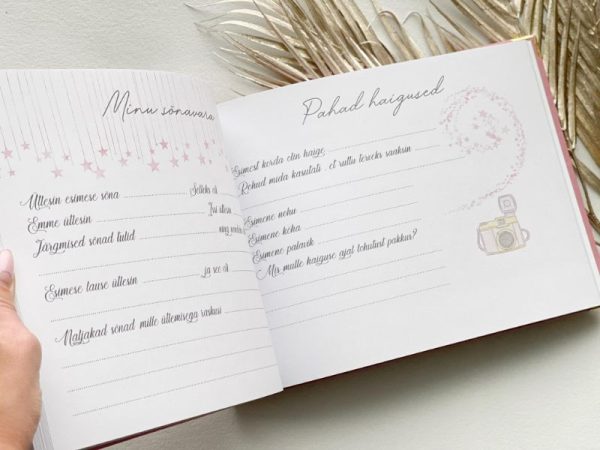 Minu sõnavara
Ütlesin esimese sõna ............ Selleks oli
Emme ütlesin ............ Issi ütlesin
Järgmised sõnad tulid ............ ning
Esimese lause ütlesin ............ ja see oli
Naljakad sõnad mille ütlemisega raskusi
Pahad haigused
Esimest korda olin haige
Rohud mida kasutati , et ruttu terveks saaksin
Esimene nohu
Esimene köha
Esimene palavik
Mis mulle haiguse ajal lohutust pakkus?